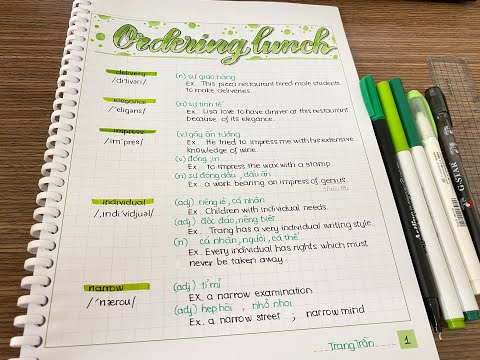 Ordering lunch
delivery
/dɪˈlɪvəri/
(n) sự giao hàng
Ex. This pizza restaurant hired male students
to make deliveries.
elegance
/ˈelɪgəns/
(n) sự tinh tế
Ex. Lisa love to have dinner at this restaurant
because of its elegance.
impress
/ɪmˈpres/
(v) gây ấn tượng
Ex. He tried to impress me with his extensive
knowledge of wine.
(v) đóng, in
Ex. to impress the wax with a stamp.
(n) sự đóng dấu, dấu ấn
Ex. a work bearing an impress of genius.
individual
/ˌɪndɪˈvɪdʒuəl/
(adj) riêng lẻ, cá nhân
Ex. Children with individual needs.
(adj) độc đáo, riêng biệt
Ex. Trang has a very individual writing style.
(n) cá nhân, người, cá thể
Ex. Every individual has rights which must
never be taken away.
narrow
/ˈnærou/
(adj) tỉ mỉ
EX. a narrow examination
(adj) hẹp hòi, nhỏ nhoi
Ex. a narrow street ; narrow mind
TrangTrần
1